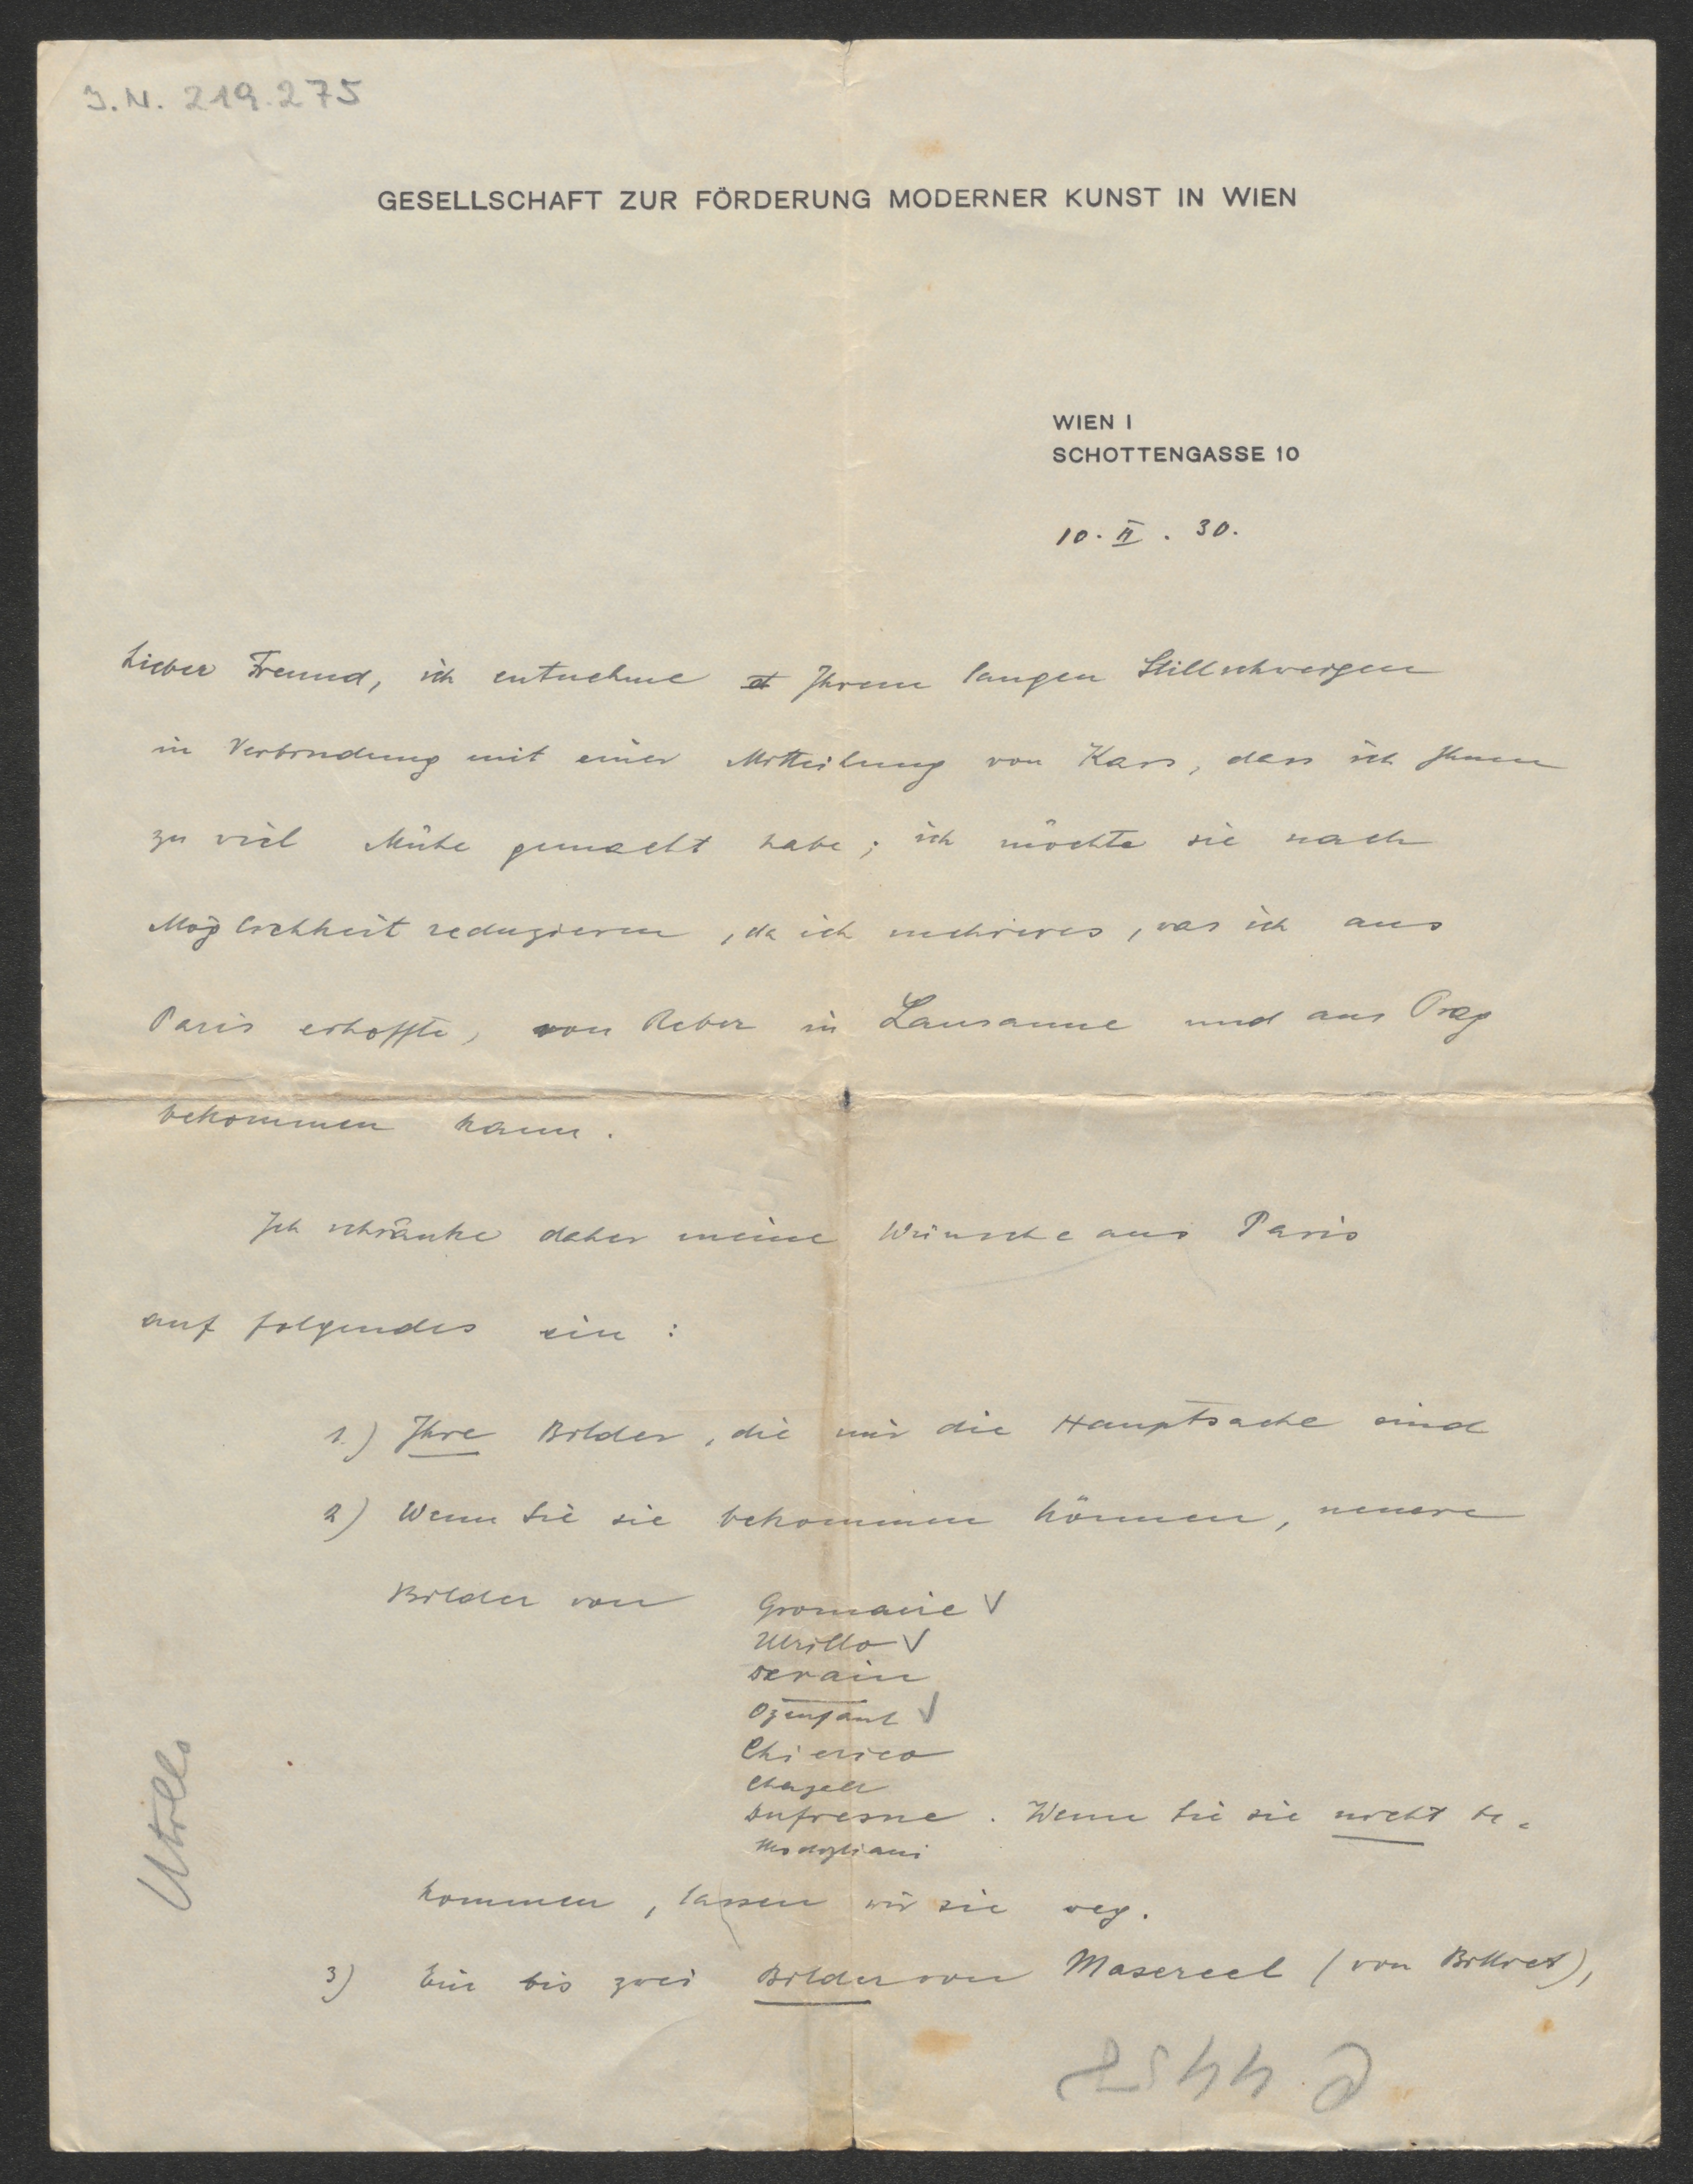 J.N. 219.275
GESELLSCHAFT ZUR FÖRDERUNG MODERNER KUNST IN WIEN
WIEN I
SCHOTTENGASSE 10
10. II. 30.
Lieber Freund, ich entnehme Ihrem langen Stillschweigen
in Verbindung mit einer Mitteilung von Kars, dass ich Ihnen
zu viel Mühe gemacht habe; ich möchte sie nach
Möglichkeit reduzieren, da ich mehreres, was ich aus
Paris erhoffte, von Reber in Lausanne und aus Prag
bekommen kann.
Ich schränke daher meine Wünsche aus Paris
auf folgendes ein:
1.) Ihre Bilder, die mir die Hauptsache sind
2) Wenn Sie sie bekommen können, neuere
Bilder von Gromaire V
Utrillo V
Derain
Ozenfant V
Chirico
Chagall
Dufresne. Wenn Sie sie nicht be-
Modigliani
kommen, lassen wir sie weg.
3) Ein bis zwei Bilder von Masereel (von Billiet),
Utrillo